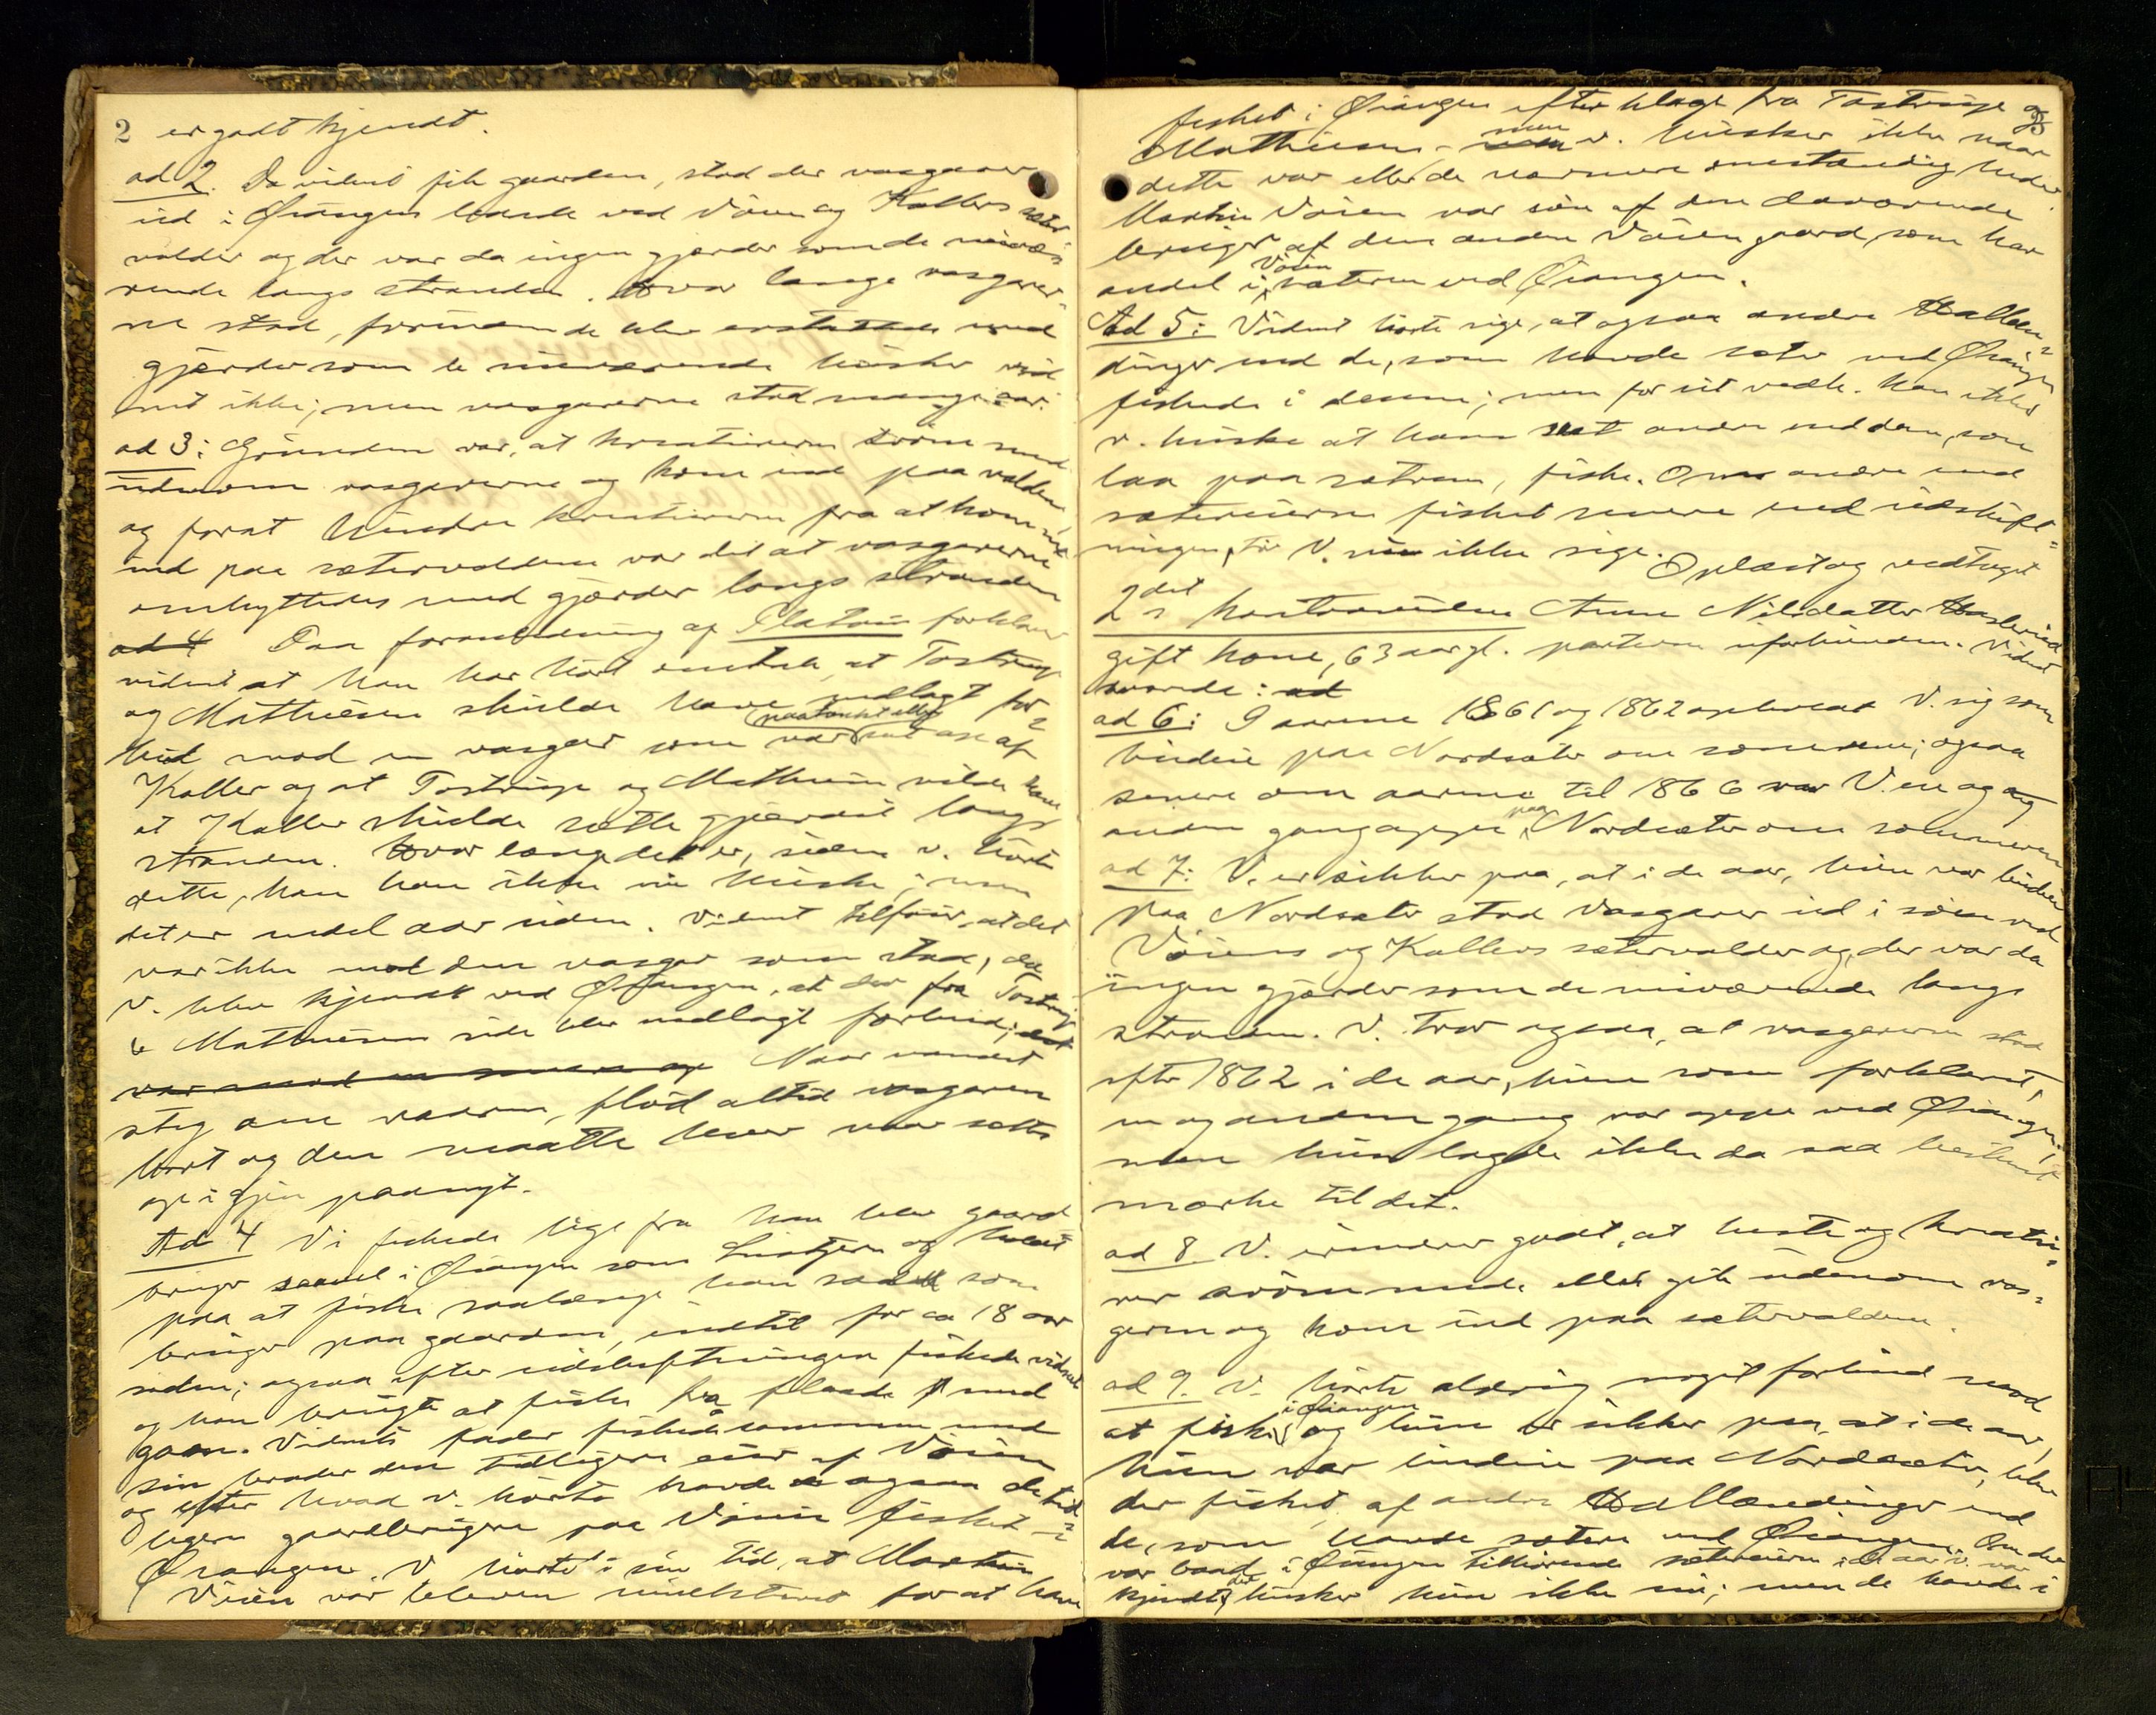 2 er godt kjendt.
ad 2. Da vidnet fik gaarden, stod der vasgarer
ud i Øiangen baade ved Vöien og Kallers sæter
volder og der var da ingen gjærder som de nuvæ-
rende langs stranden. Hvor længe vasgarer-
ne stod, forinden de blev erstattede med
gjærder som de nuværende husker vid
net ikke; men vasgarerne stod mange aar.
ad 3: Grunden var, at kreaturerne svöm med
udenom vasgarerne og kom ind paa volden
og forat hindre kreaturerne fra at komme
ind paa sætervoldene var det at vasgarerne
ombyttedes med gjærder langs stranden
ad 4 Paa foranledning af Platou forklarer
vidnet at han har hört omtale, at Tostrup
og Mathiesen skulde have nedlagt for-
bud mod en vasgar som var paatænkt eller sat op af
Kaller og at Tostrup og Mathiesen vilde have
at Kaller skulde sætte gjærdet langs
stranden. Hvor længe det er, siden v. hörte
dette, kan han ikke nu huske; men
det er endel aar siden. Vidnet tilföier, at det
var ikke mod den vasgar som stod, da
v. blev kjendt ved Øiangen, at der fra Tostrup
& Mathiesens side blev nedlagt forbud; det
var mod en Naar vandet
steg om vaaren, flöd altid vasgaren
bort og den maatte hver vaar sættes
op igjen paanyt.
Ad 4 Vi fiskede lige fra han blev gaard
bruger saavel i Øiangen som Sandtjern og holdt
paa at fiske saalænge han sad som
bruger paa gaarden, indtil for ca 18 aar
siden; ogsaa efter udskiftningen fiskede vidnet
og han brugte at fiske fra flaade med
garn. Vidnets fader fiskede sammen med
sin broder den tidligere eier af Vöien
og efter hvad v. hörte havde ogsaa de tid-
ligere gaardbrugere paa Vöien fisket i
Øiangen. V hörte i sin tid, at Martin
Vöien var bleven mulkteret for at have
fisket i Øiangen efter klage fra Tostrup og
Mathiesen - men v. husker ikke naar
dette var eller de nærmere omstændigheder.
Martin Vöien var sön af den daværende
bruger af den anden Vöien gaard, som har
andel i Vöien sæteren ved Øiangen.
Ad 5: Vidnet hörte sige, at ogsaa andre Hallæn-
dinger end de, som havde sæter ved Øiangen
fiskede i denne; men for sit vedk. kan ikke
v. huske at have set andre end dem, som
laa paa sætrene, fiske. Om andre end
sætereierne fisket senere end udskift-
ningen, tör V. nu ikke sige. Oplæst og vedtaget
2det hovedvidne Anne Nilsdatter
gift kone, 63 aar gl. parterne uforbunden. Vidnet
svarede: ad
ad 6: I aarene 1861 og 1862 opholdt V. sig som
budeie paa Nordsæter om sommeren; ogsaa
senere om aarene til 1866 var V. en og
anden gang oppe paa Nordsæter om sommeren
ad 7: V. er sikker paa, at i de aar, hun var budeie
paa Nordsæter stod vasgarer ud i söen ved
Vöiens og Kallers sætervolder og der var da
ingen gjærder som de nuværende langs
stranden. V. tror ogsaa, at vasgarerne stod
efter 1862 i de aar, hun som forklaret,
en og anden gang var oppe ved Øiangen,
men hun lagde ikke da saa bestemt
mærke til det.
ad 8 V. erindrer godt, at heste og kreatu-
rer svömmede eller gik udenom vas-
garen og kom ind paa sætervoldene.
ad 9. V. hörte aldrig noget forbud mod
at fiske i Øiangen og hun er sikker paa, at i de aar,
hun var budeie paa Nordsæter, blev
der fisket af andre Hallændinger end
de, som havde sætere ved Øiangen. Om der
var baad i Øiangen tilhörende sætereierne i de aar v. var
kjendt der husker hun ikke nu; men de havde i